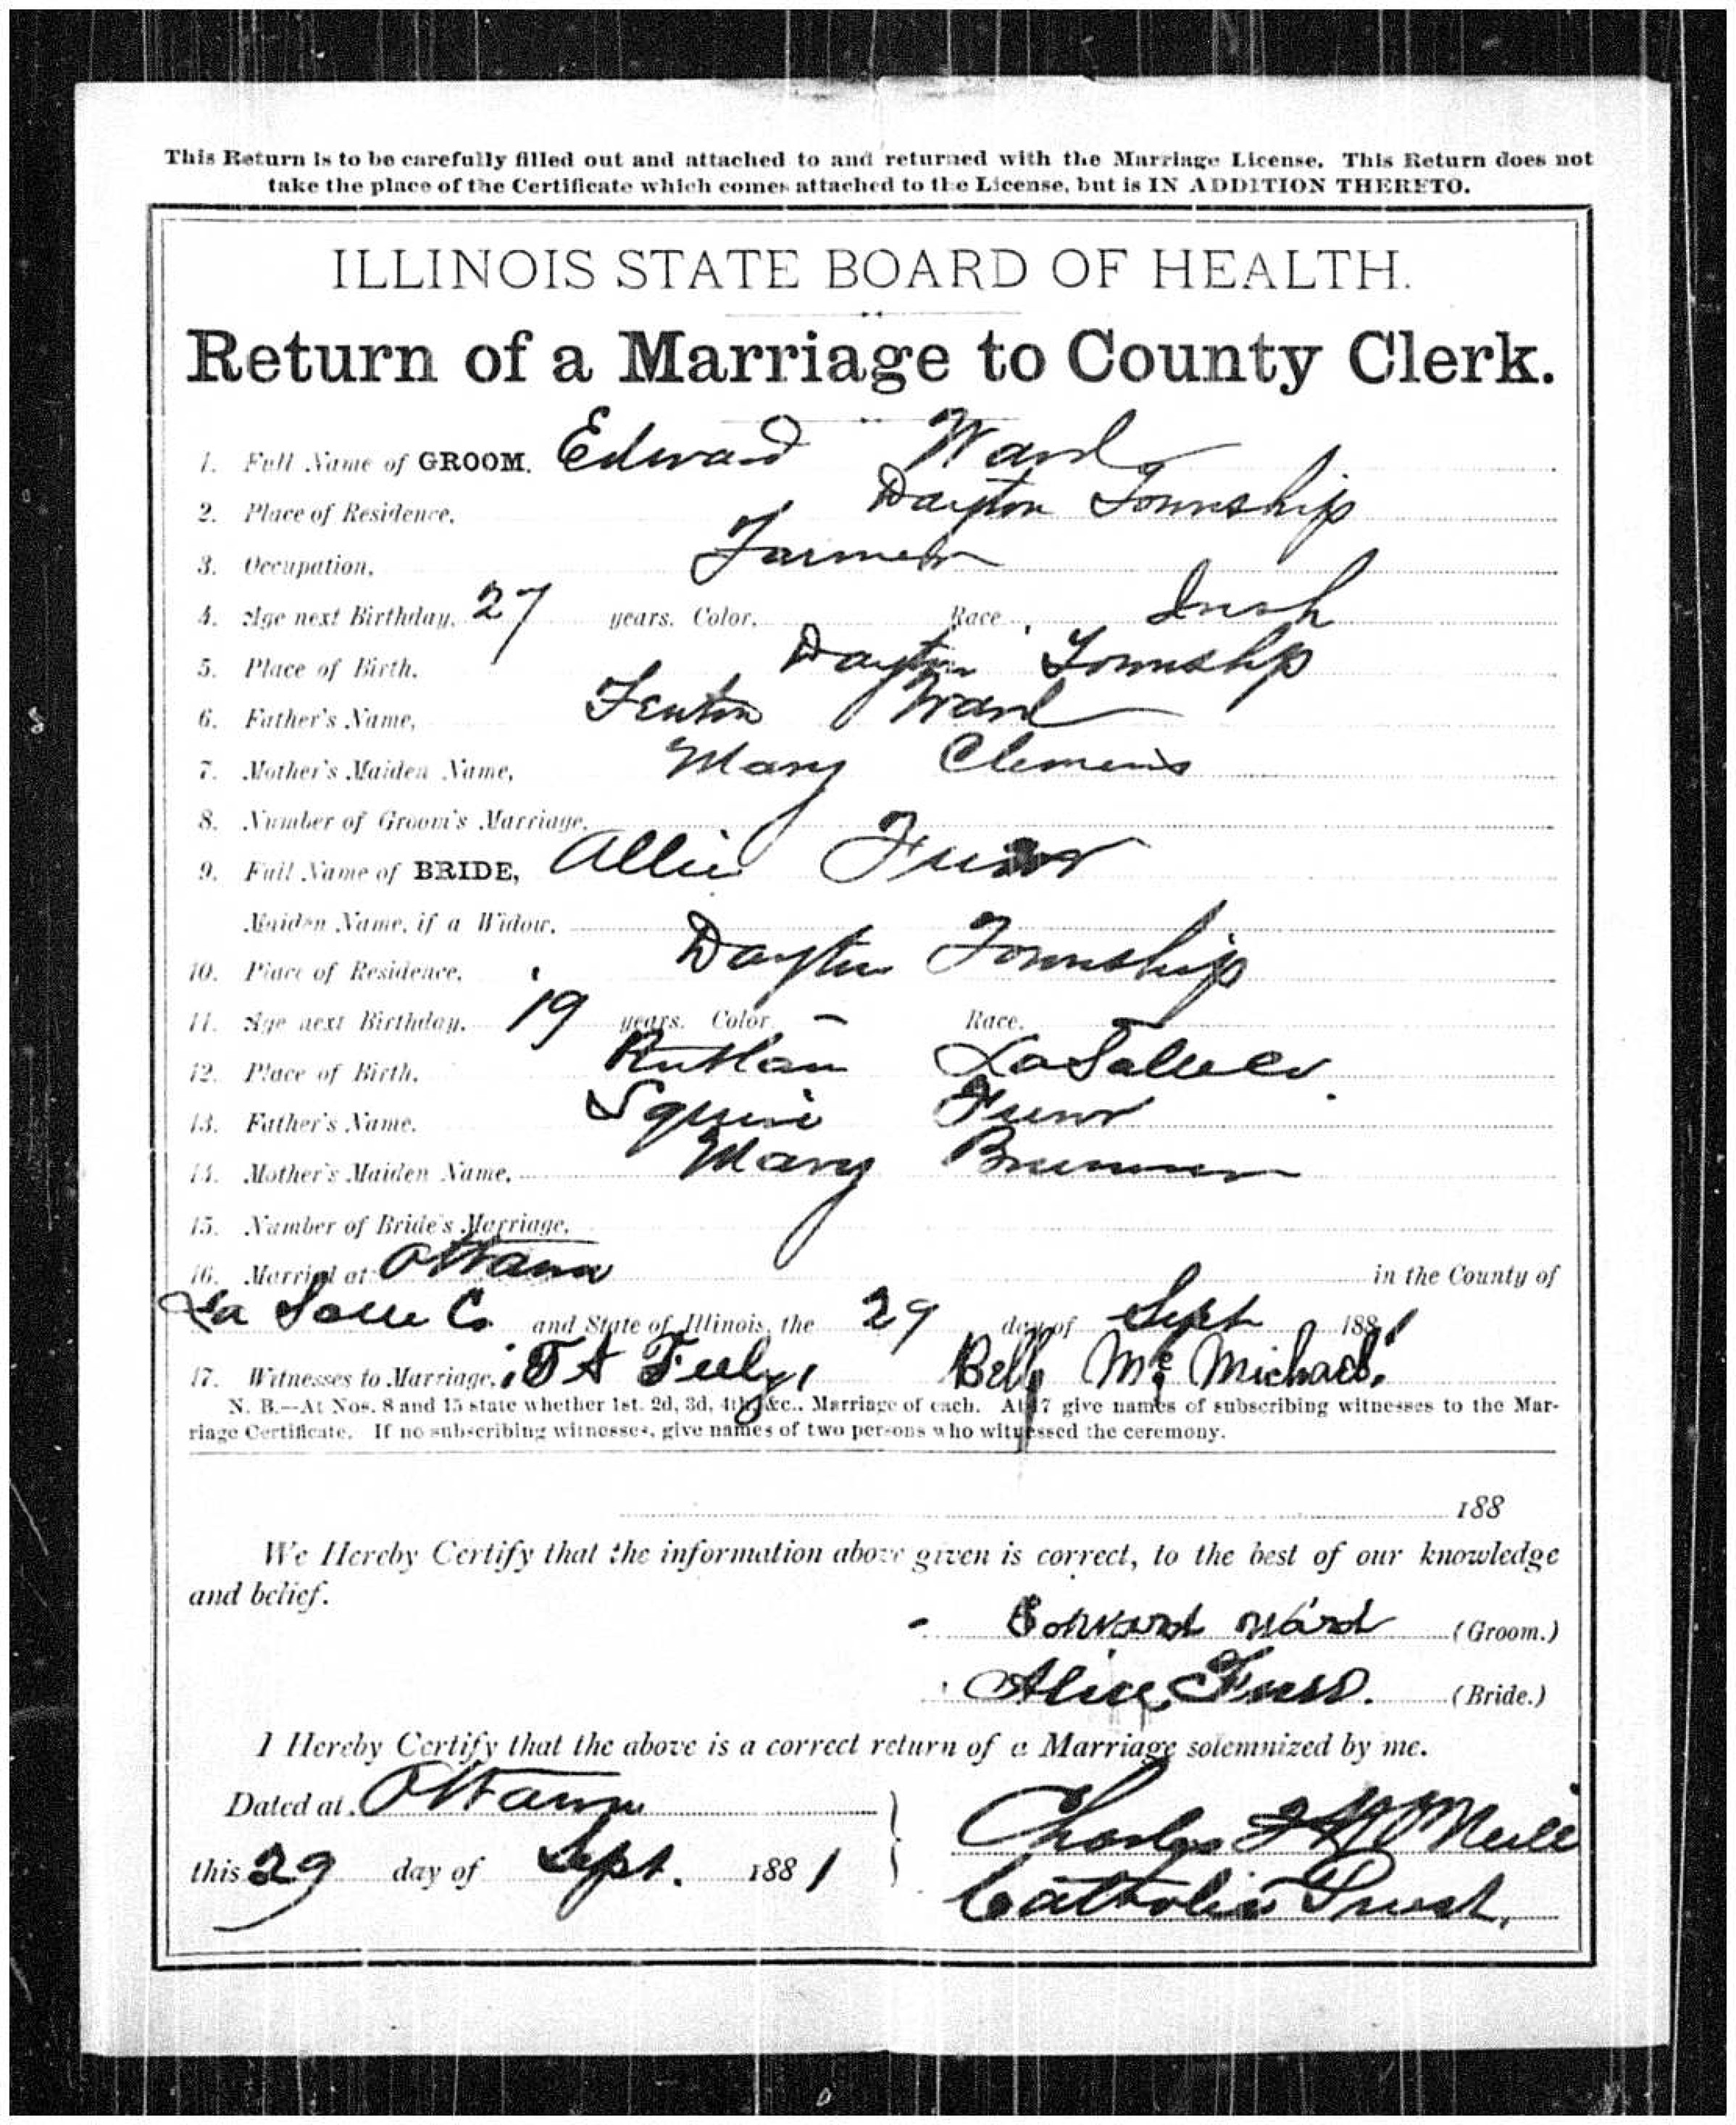 This Return is to be carefully filled out and attached to and returned with the Marriage License. This Return does not
take the place of the Certificate which comes attached to the License, but is IN ADDITION THERETO.
ILLINOIS STATE BOARD OF HEALTH.
Return of a Marriage to County Clerk.
1. Full Name of GROOM, Edward Ward
2. Place of Residence, Dayton Township
3. Occupation, Farmer
4. Age next Birthday, 27 years. Color, Race, Irish
5. Place of Birth, Dayton Township
6. Father's Name, Fenton Ward
7. Mother's Maiden Name, Mary Clemens
8. Number of Groom's Marriage,
9. Full Name of BRIDE, Allie
Maiden Name, if a Widow,
10. Place of Residence, Dayton Township
11. Age next Birthday, 19 years. Color – Race,
12. Place of Birth, Rutlan LaSalle Co.
13. Father's Name, Squire
14. Mother's Maiden Name, Mary
15. Number of Bride's Marriage,
16. Married at Ottawa in the County of
La Salle Co and State of Illinois, the 29 day of Sept 1881
17. Witnesses to Marriage, T A Feely, Bell Mc Michael.
N. B.—At Nos. 8 and 15 state whether 1st, 2d, 3d, 4th, &c., Marriage of each. At 17 give names of subscribing witnesses to the Mar-
riage Certificate. If no subscribing witnesses, give names of two persons who witnessed the ceremony.
188
We Hereby Certify that the information above given is correct, to the best of our knowledge
and belief.
Edward Ward (Groom.)
Alice (Bride.)
I Hereby Certify that the above is a correct return of a Marriage solemnized by me.
Dated at Ottawa
this 29 day of Sept. 1881
Charles
Catholic Priest.